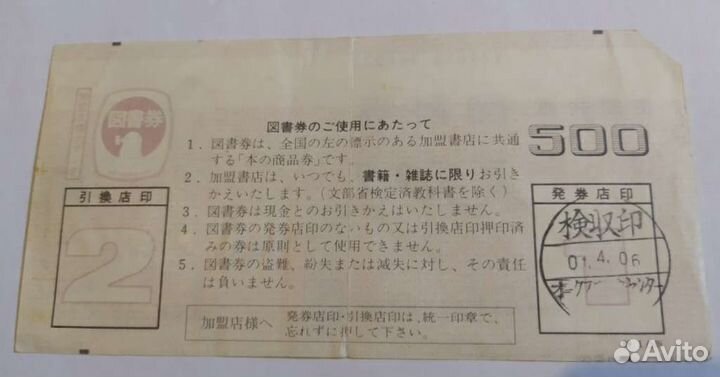 図書券
図書券のご使用にあたって
1．図書券は、全国の左の標示のある加盟書店に共通
する「本の商品券」です。
2．加盟書店は、いつでも、書籍・雑誌に限りお引き
かえいたします。（文部省検定済教科書を除く）
3．図書券は現金とのお引きかえはいたしません。
4．図書券の発券店印のないもの又は引換店印押印済
みの券は原則として使用できません。
5．図書券の盗難、紛失または滅失に対し、その責任
は負いません。
加盟店様へ
発券店印・引換店印は、統一印章で、
忘れずに押して下さい。
引換店印
2
500
発券店印
検収印
01.4.06
Avito